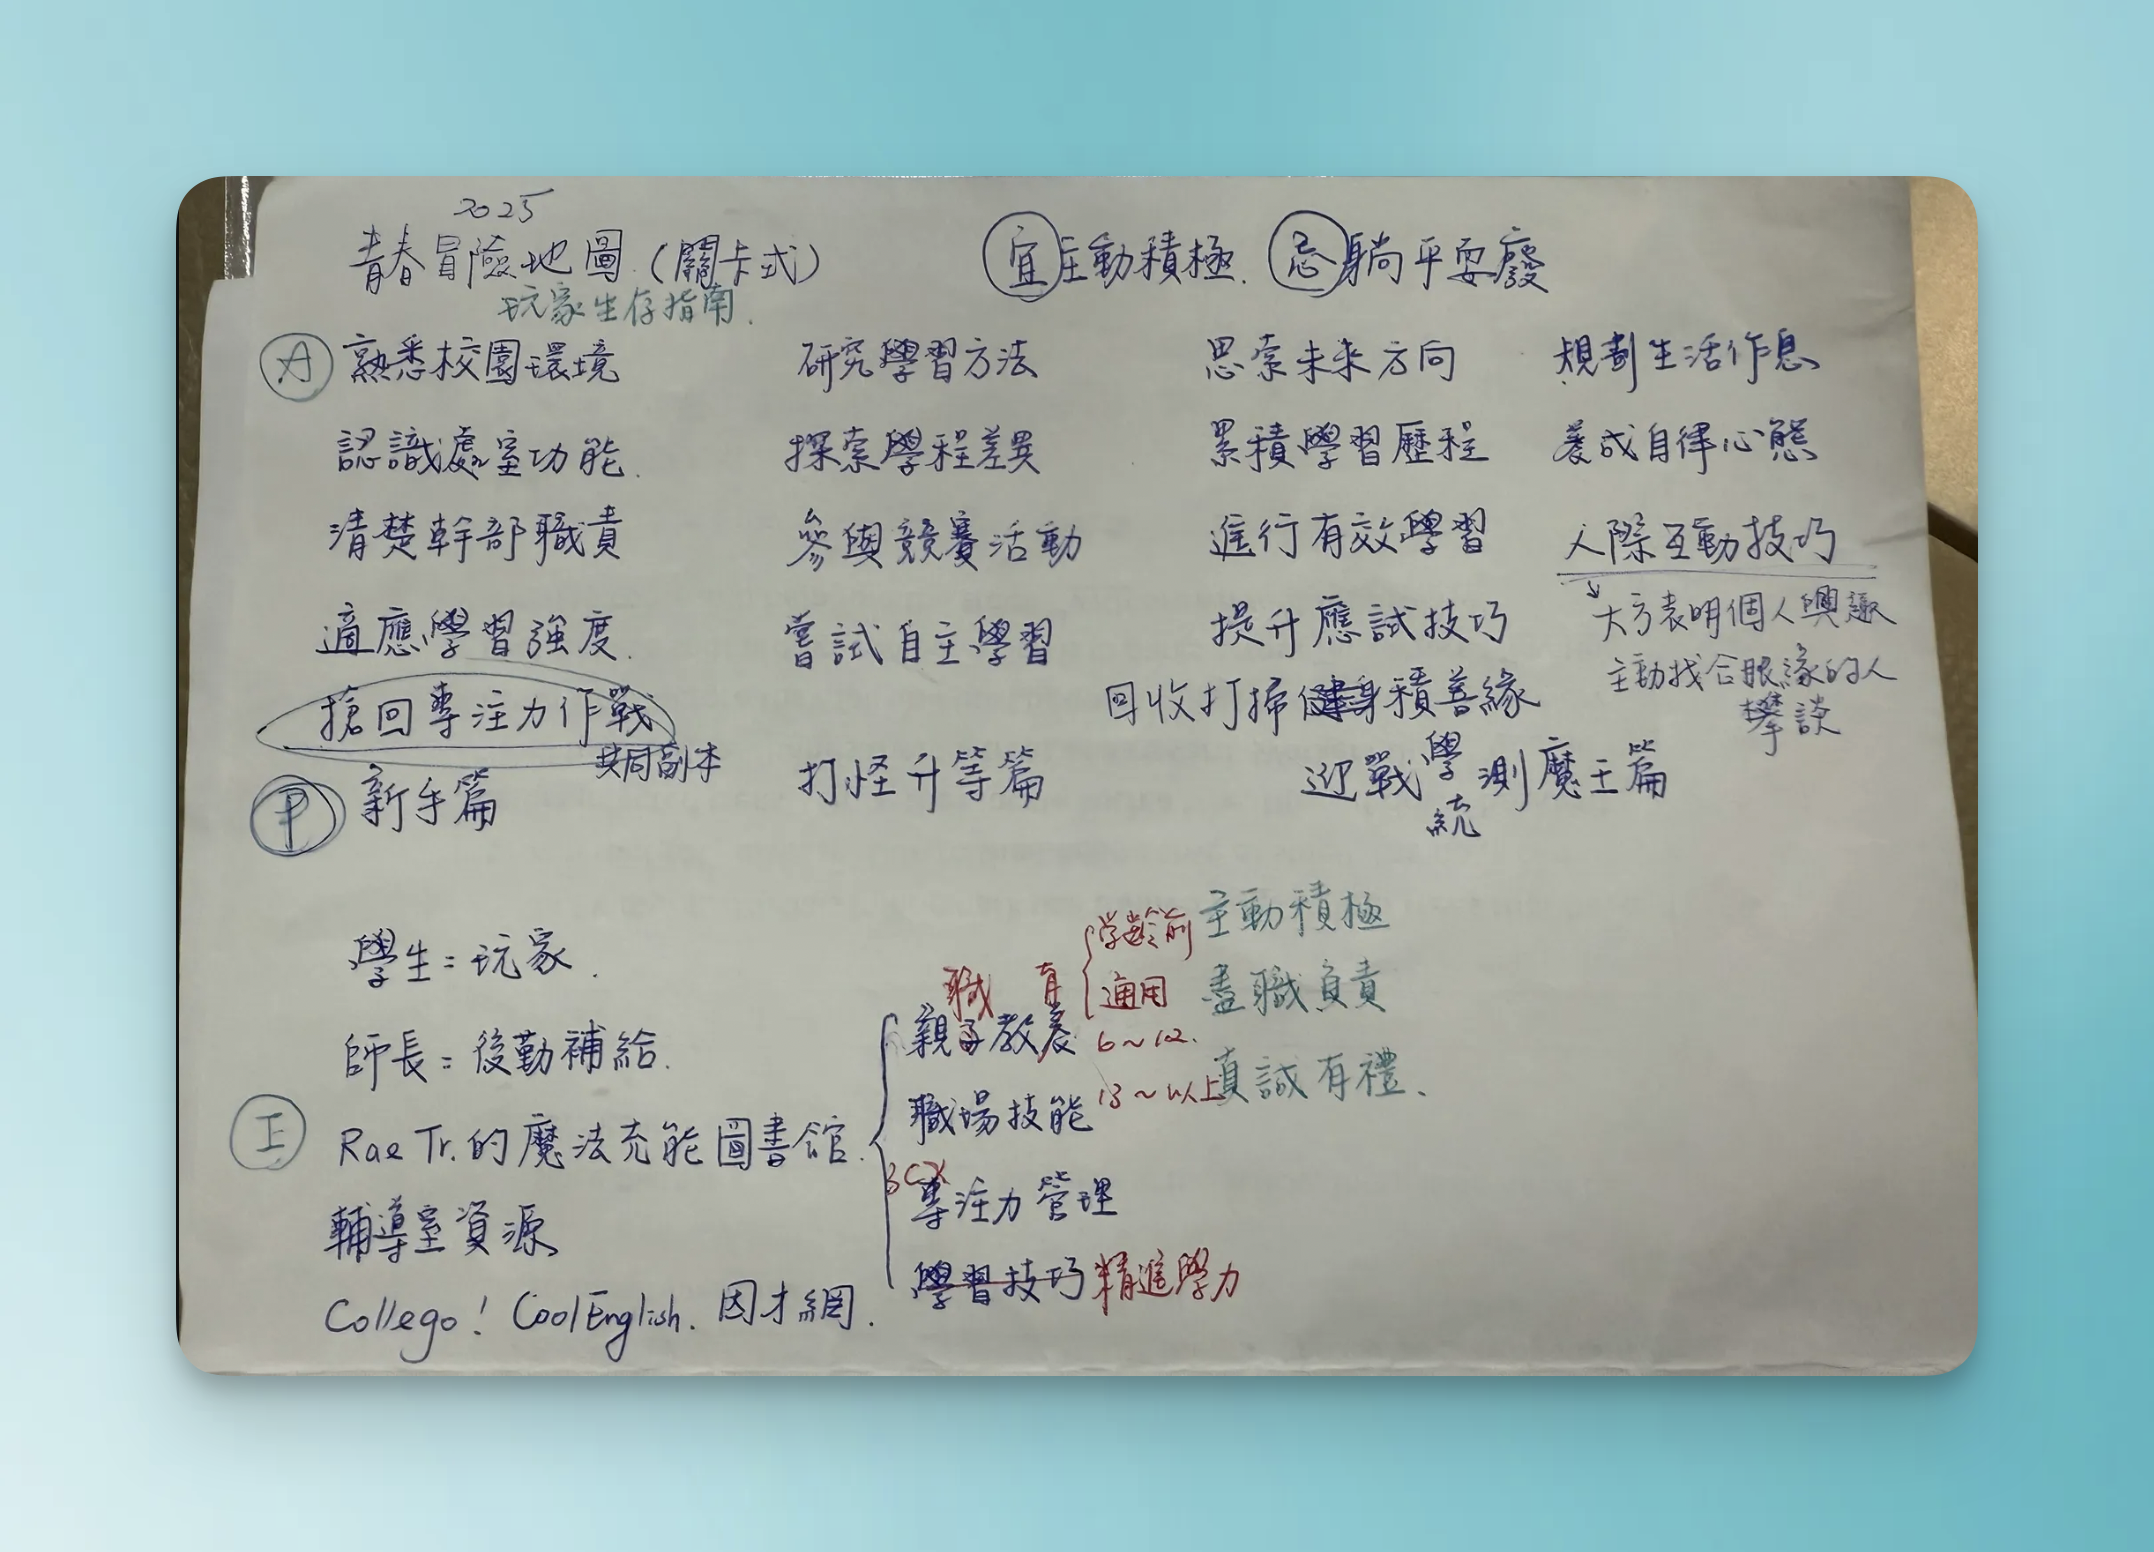 2025
青春冒險地圖(關卡式) 宜 主動積極. 忌 躺平耍廢
玩家生存指南.
A 熟悉校園環境 研究學習方法 思索未來方向 規劃生活作息
認識處室功能. 探索學程差異 累積學習歷程 養成自律心態
清楚幹部職責 參與競賽活動 進行有效學習 人際互動技巧
適應學習強度. 嘗試自主學習 提升應試技巧 大方表明個人興趣
主動找合眼緣的人
攀談
搶回專注力作戰 回收打掃健身積善緣
共同副本
P 新手篇 打怪升等篇 迎戰學測魔王篇
統
學生=玩家.
師長=後勤補給.
工 Rae Tr.的魔法充能圖書館.
輔導室資源
Collego! CoolEnglish. 因才網.
職 育
親子教養
職場技能
3C
專注力管理
學習技巧 精進學力
学齡前
適用
6~12.
13~以上
主動積極
盡職負責
真誠有禮.